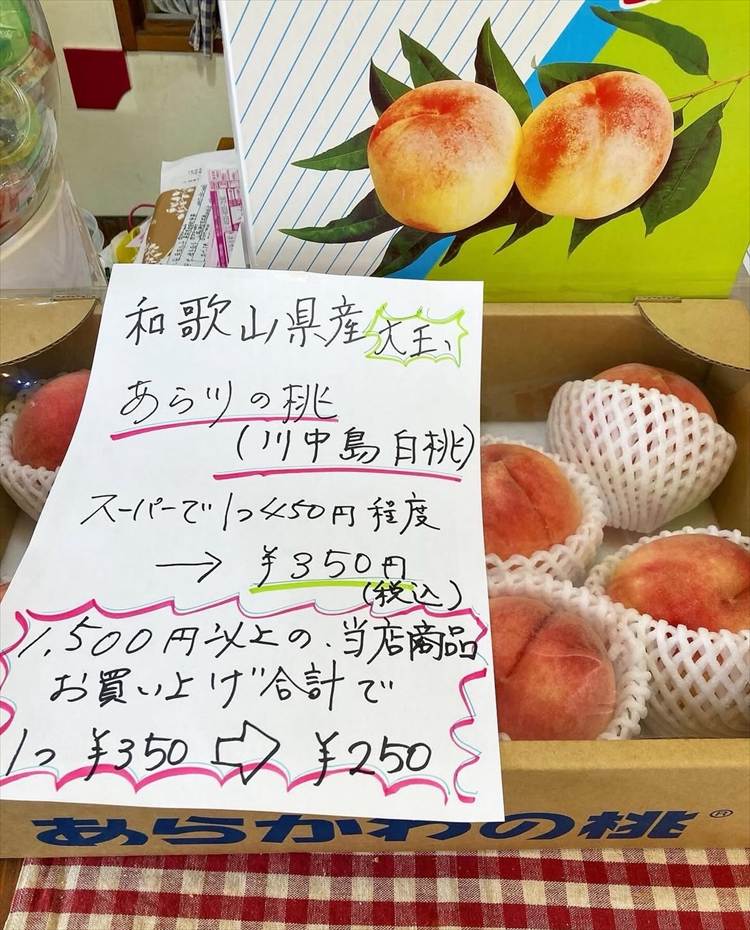 和歌山県産 大玉、
あら川の桃
(川中島白桃)
スーパーで1つ450円程度
→ ¥350円
(税込)
1,500円以上の、当店商品
お買い上げ合計で
1つ ¥350 ⇨ ¥250
あらかわの桃®